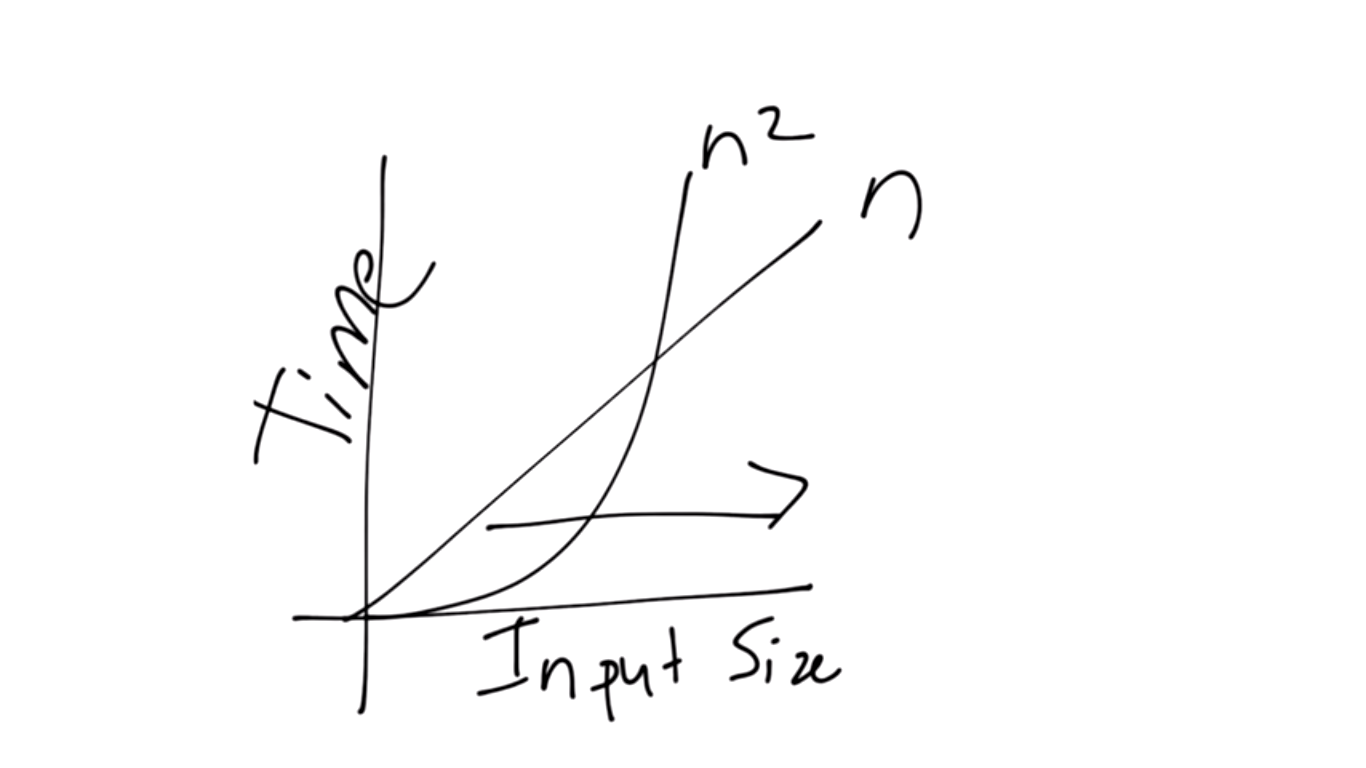 n²
n
Time
Input Size